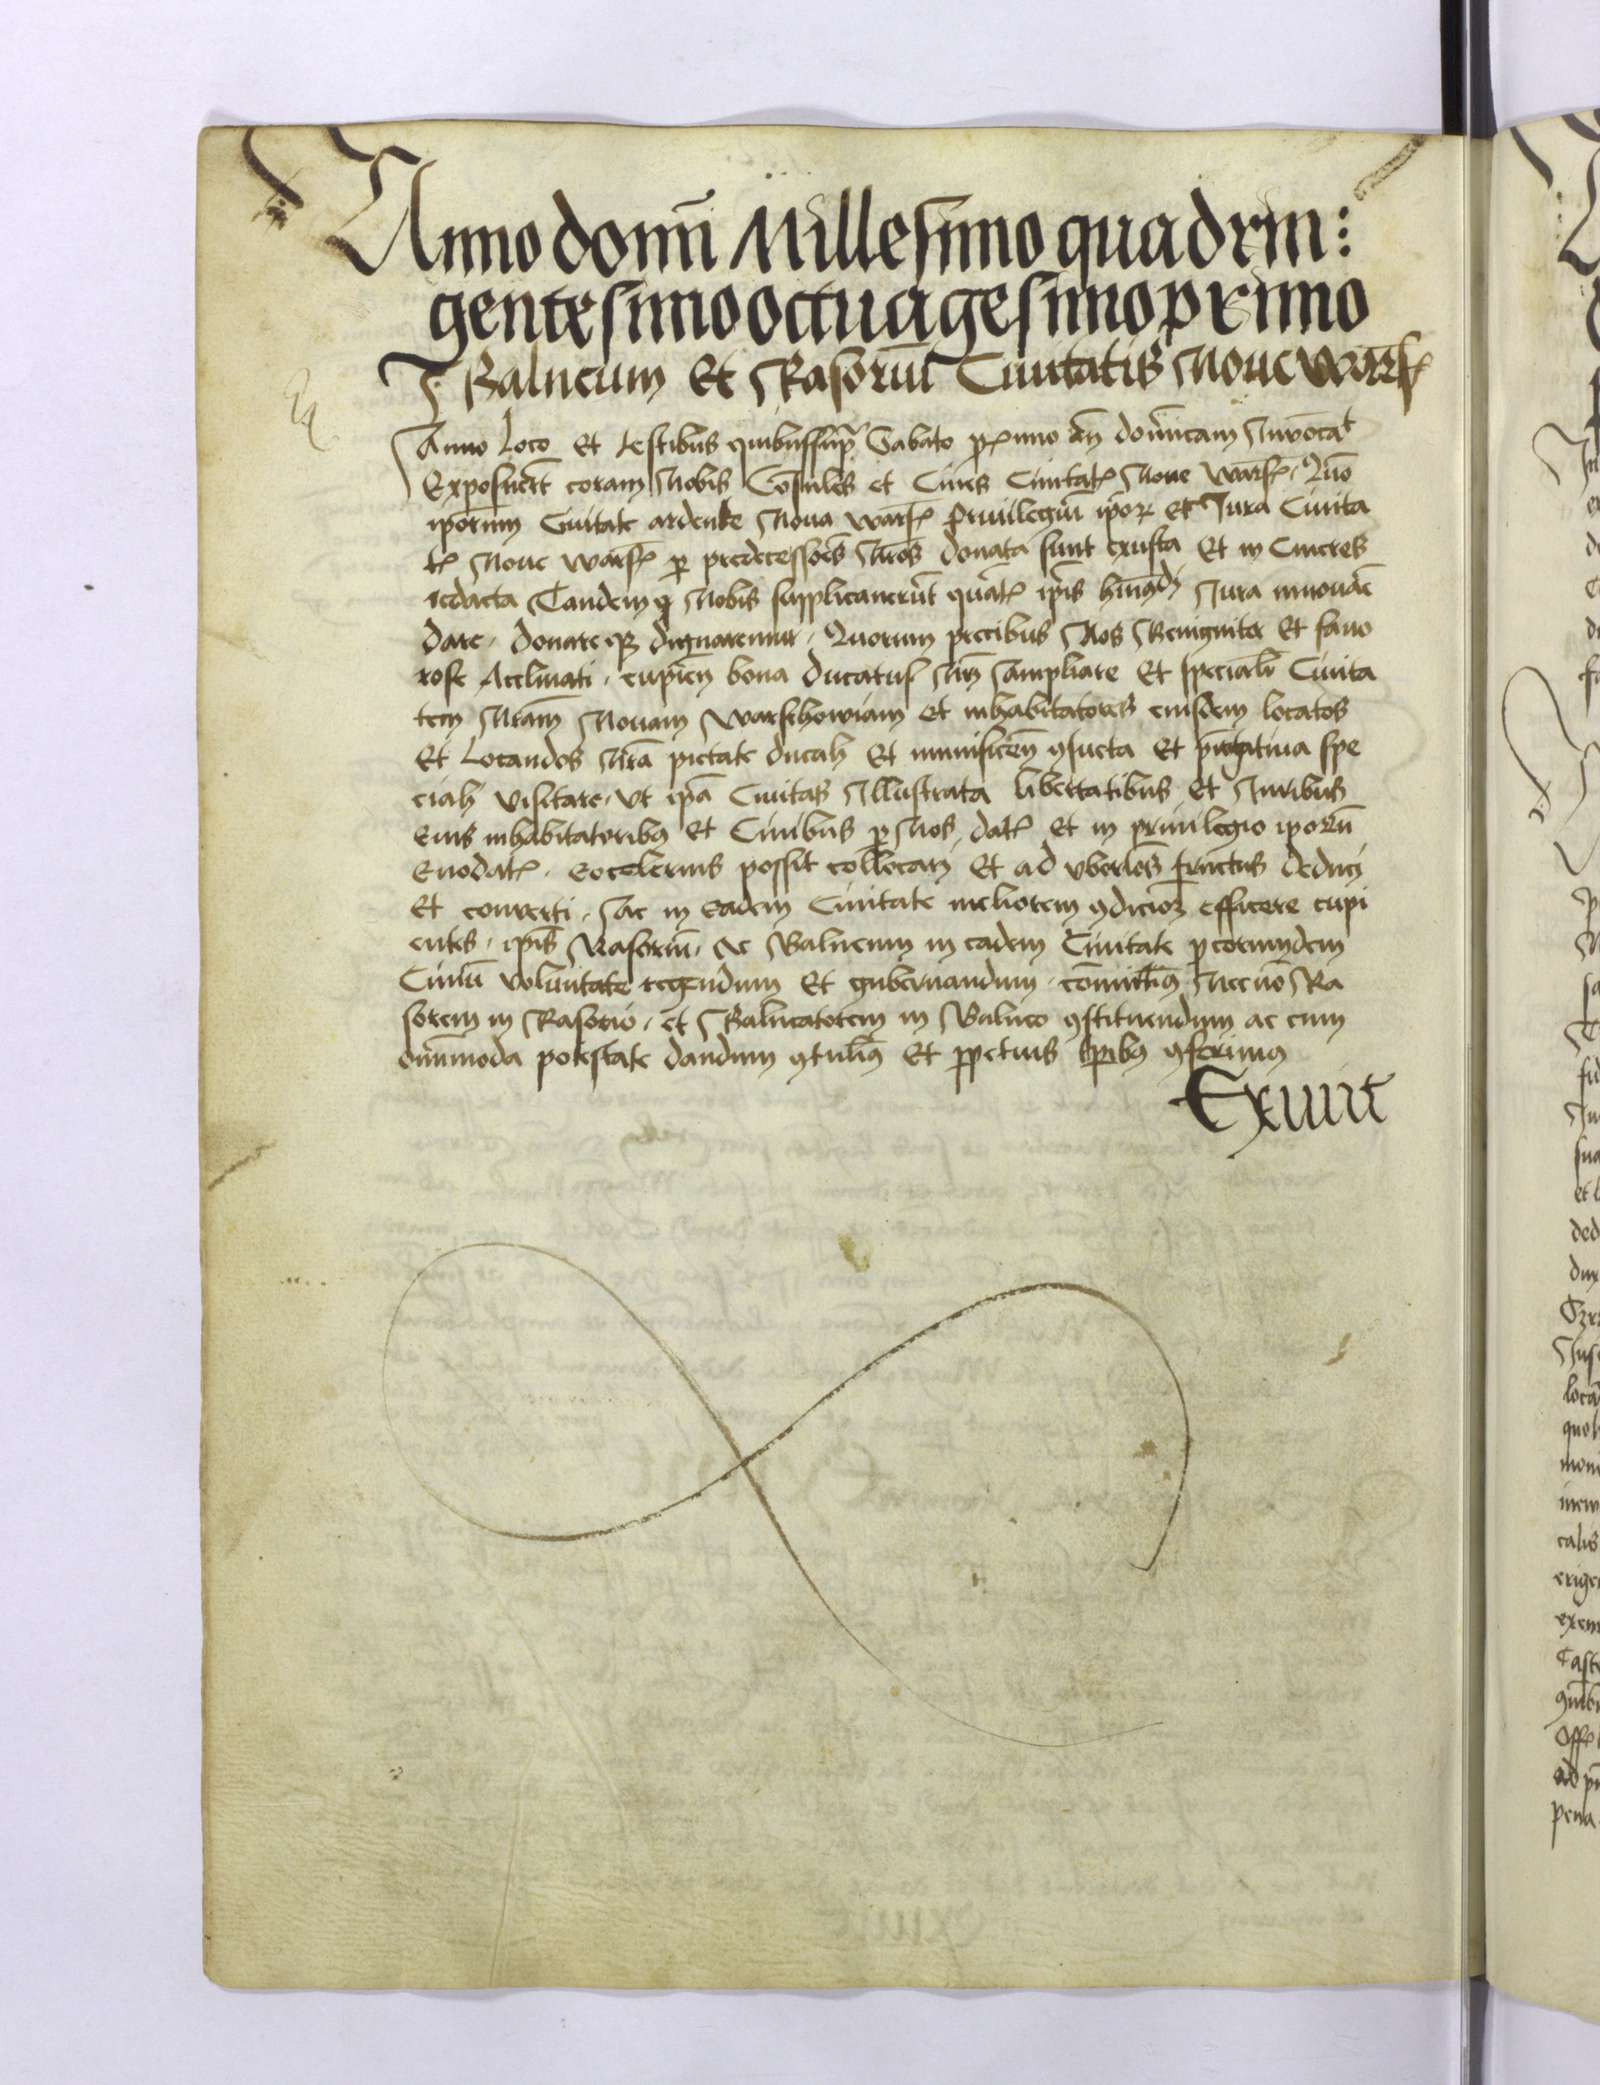 Anno domĩ Millesimo quadrin:
gentesimo octuagesimo primo
Balneum Et Rasoriũ Ciuitatis Noue Warſ
Anno Loco Et testibus quibus supra Sabato pximo añ dominicam Inuocat
Exposuerũt coram Nobis Cosules et Ciues Ciuitat Noue Warſ. Quõ
ipõrum Ciuitate ardente Noua Warſ Priuilegiũ ipor et Jura Ciuita
t Noue Warſ p predecessoẽs Nros donata sunt exusta Et in Cineres
redacta Tandemq Nobis supplicauerũt quat ipis Jura innouãe
dare. donareq dignaremur. Quorum precibus Nos Benigniter Et fauo
rose Acclinati. cupieñ bona ducatus Nri Ampliare Et speciali Ciuita
tem Nrãm Nouam Warschouiam Et inhabitatores eiusdem locatos
Et Locandos Nrã pietate ducali Et munificeñ 9sueta Et spe
ciali visitare. vt ipã Ciuitas Illustrata libertatibus Et Juribus
Eius inhabitatorib9 Et Ciuibus p Nos dat Et in priuilegio iporũ
Enodat. eocelerius possit collocari Et ad vberies fructus deduci
Et conuerti. Ac in eadem Ciuitate meliorem 9dicioz efficere cupi
entes. ipis Rasoriũ. Ac Balneum in eadem Ciuitate p eorumdem
Ciuiũ voluntate regendum Et gubernandum. Necnõ Ra
sorem in Rasorio. et Balneatorem in Balneo 9stituendum ac cum
omnimoda potestate dandum 9tulim9 Et ppetuis tpib9 9ferim9
Exiuit